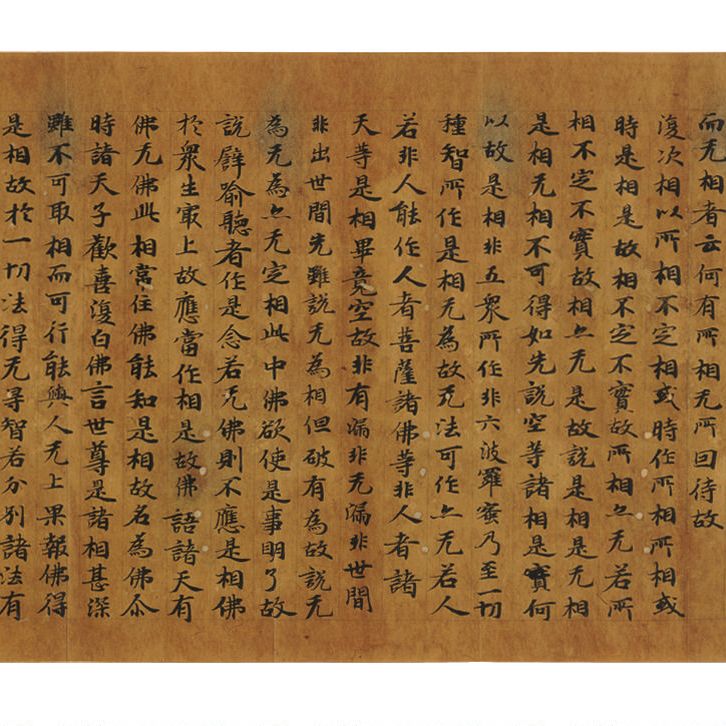 而无相者云何有所相无所因待故
復次相以所相不定相或時作所相所相或
時是相是故相不定不實故所相亦无若所
相不定不實故相亦无是故説是相是无相
是相无相不可得如先說空等諸相是實何
以故是相非五衆所作非六波羅蜜乃至一切
種智所作是相无為故无法可作亦无若人
若非人能作人者菩薩諸佛等非人者諸
天等是相畢竟空故非有漏非无漏非世間
非出世間先雖説无為相但破有為故説无
為无為亦无定相此中佛欲使是事明了故
說譬喻聽者作是念若无佛則不應是相佛
於衆生㝡上故應當作相是故佛語諸天有
佛无佛此相常住佛能知是相故名為佛尒
時諸天子歡喜復白佛言世尊是諸相甚深
雖不可取相而可行能與人无上果報佛得
是相故於一切法得无㝵智若分別諸法有